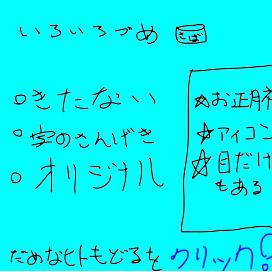 いろいろづめ さば
○きたない
○字のさんげき
○オリジナル
☆お正月
☆アイコン
☆目だけ
もある
だめなヒトもどるを クリック